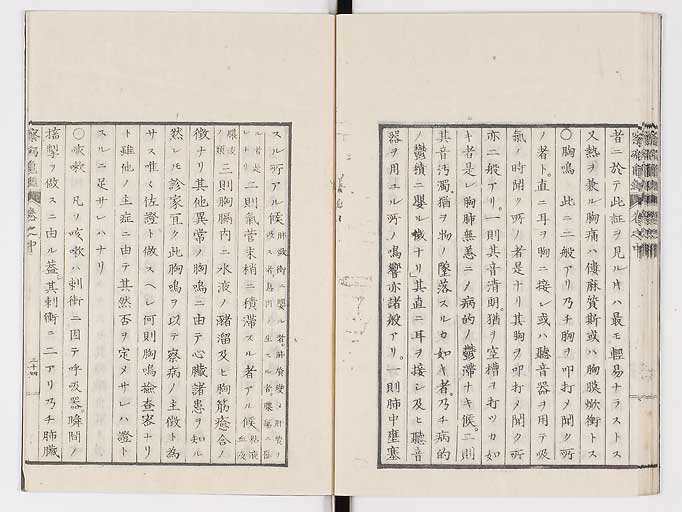 者ニ於テ此証ヲ見ル片ハ最モ輕易ナラストス
又熱ヲ兼ル胸痛ハ僂麻質斯或ハ胸膜焮衝トス
〇胸鳴 此ニ二般アリ乃チ胸ヲ叩打メ聞ク所
ノ者ト直ニ耳ヲ胸ニ接シ或ハ聽音器ヲ用テ吸
氣ノ時聞ク所ノ者是ナリ其胸ヲ叩打メ聞ク所
亦二般アリ一則其音清朗猶ヲ空樽ヲ打ツカ如
キ者是レ胸肺無恙ニノ病的ノ鬱滯ナキ候二則
其音汚濁猶ヲ物ノ墜落スルカ如キ者乃チ病的
ノ鬱積ニ嬰ル候ナリ其直ニ耳ヲ接シ及ヒ聽音
器ヲ用ユル所ノ鳴響亦諸般アリ一則肺中壅塞
スル所アル候
二則氣管末梢ニ積滯スル者アル候
三則胸膈内ニ水液ノ瀦溜及ヒ胸筋癒合ノ
徴ナリ其他異常ノ胸鳴ニ由テ心臓諸患ヲ知ル
然レモ診家宜ク此胸鳴ヲ以テ察病ノ主徴ト為
サス唯佐證ト做スヘシ何則胸鳴撿査容ナリ
ト雖他ノ主症ニ由テ其然否ヲ定メサレハ證ト
スルニ足サレハナリ
〇咳嗽 凡ソ咳嗽ハ刺衝ニ因テ呼吸器瞬間ノ
搐掣ヲ做スニ由ル蓋シ其刺衝ニ二アリ乃チ肺臓
卷之中
二十四